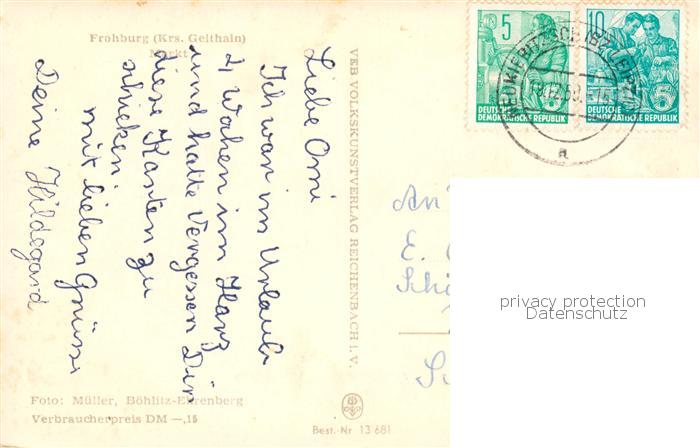 Frohburg (Krs. Geithain)
Markt
Liebe Omi
Ich war im Urlaub
2, Wochen im Harz
und hatte Vergessen Dir
diese Karten zu
schicken.
mit lieben Grüsse
Deine Hildegard
Foto: Müller, Böhlitz-Ehrenberg
Verbraucherpreis DM —,15
VEB VOLKSKUNSTVERLAG REICHENBACH i. V.
Best.-Nr 13 681
5
DEUTSCHE
DEMOKRATISCHE REPUBLIK
10
DEUTSCHE
DEMOKRATISCHE REPUBLIK
5
a
An
E.
privacy protection
Datenschutz